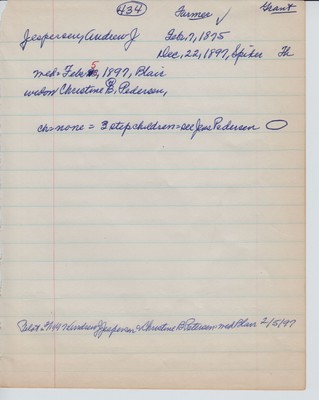 434 Farmer ✓ Grant
Jespersen, Andrew J Feb. 7, 1875
Dec, 22, 1897, Spiker Th
med= Feb 5, 1897, Blair
widow Christine B. Pedersen,
ch=none = 3 stepchildren=see Jens Pedersen
Andrew J Jespersen & Christine B Petersen med Blair 2/5/97